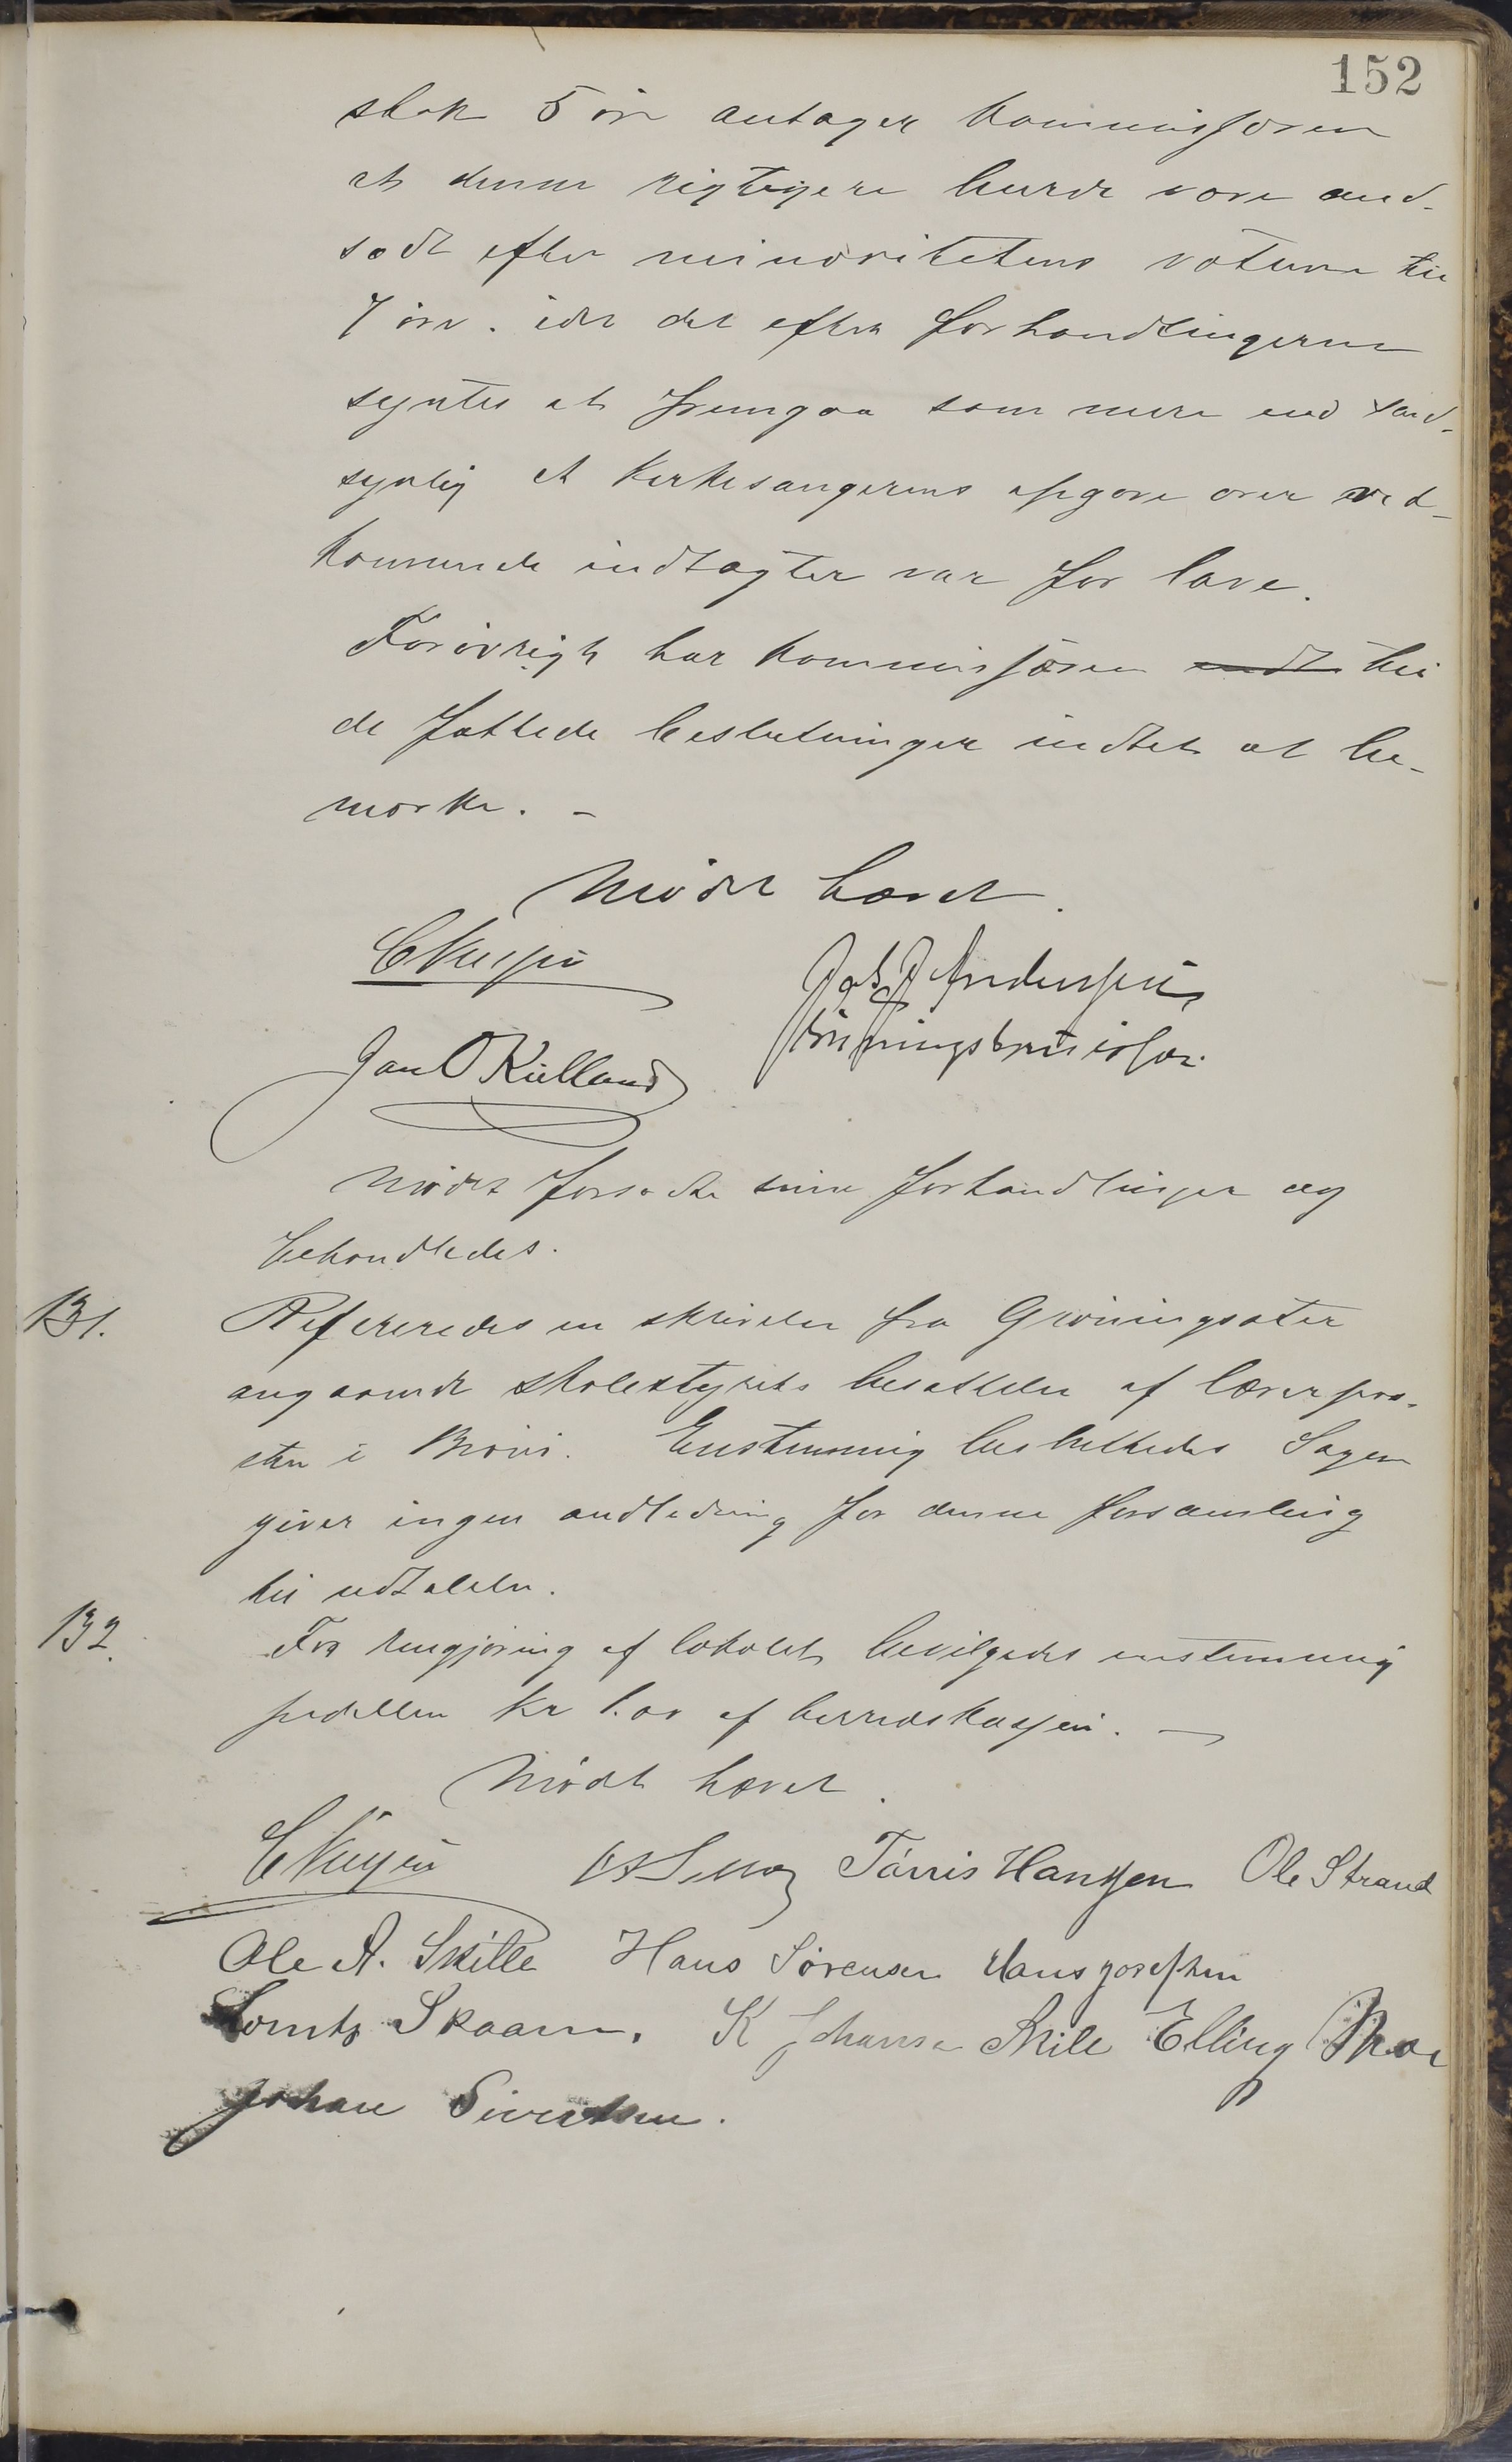 152
skat 5 øre antager kommissøren
at denne rigtigere burde være and-
sadt efter minoritetens votum til
7 øre. idet det efter forhandlingerne
syntes at fremgaa som mere end sand-
synlig at kirkesangerens opgave over ved-
kommende indtægter var for lave.
Forøvrigt har kommissøren til
de fattede beslutninger indtet at be-
mærke. -
Mødet hævet.
Andersen
Jan O Kielland
Mødet forsatte sine forhandlinger og
behandledes.
131. Refereredes en skrivelse fra Grøningsæter
angaaende skolestyrets besættelse af lærerpos-
sten i . Enstemmig besluttedes Sagen
giver ingen andledning for denne forsamling
til udtalelse.
132. For rengjøring af lokalet bevilgedes enstemmig
pedellen kr 1.00 af herredskassen. -
Mødet hævet.
Tørris Hanssen Ole Strand
Ole A. Skille Hans Sørensen Hans Josefsen
Lornts Skaarn. K Johansen Skile Elling
Johan Sivertsen.